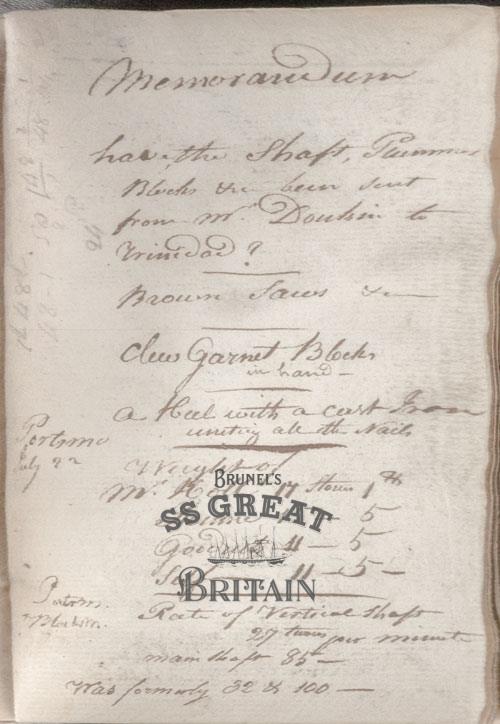 Memorandum
have the Shaft, Plummer
Blocks &c been sent
from Mr. Donkin to
Trinidad?
Brown Saws &c
Clew Garnet Blocks
in hand —
a Heel with a cast Iron
uniting all the Nails
Portsmo
July 22
Weight of
Mr. 11 Stones 1 lb
— 5
11 — 5
11 — 5 —
BRUNEL'S
SS GREAT
BRITAIN
Portsm.
Rate of Vertical Shaft
27 turns per minute
main Shaft 85 —
Was formerly 32 & 100 —